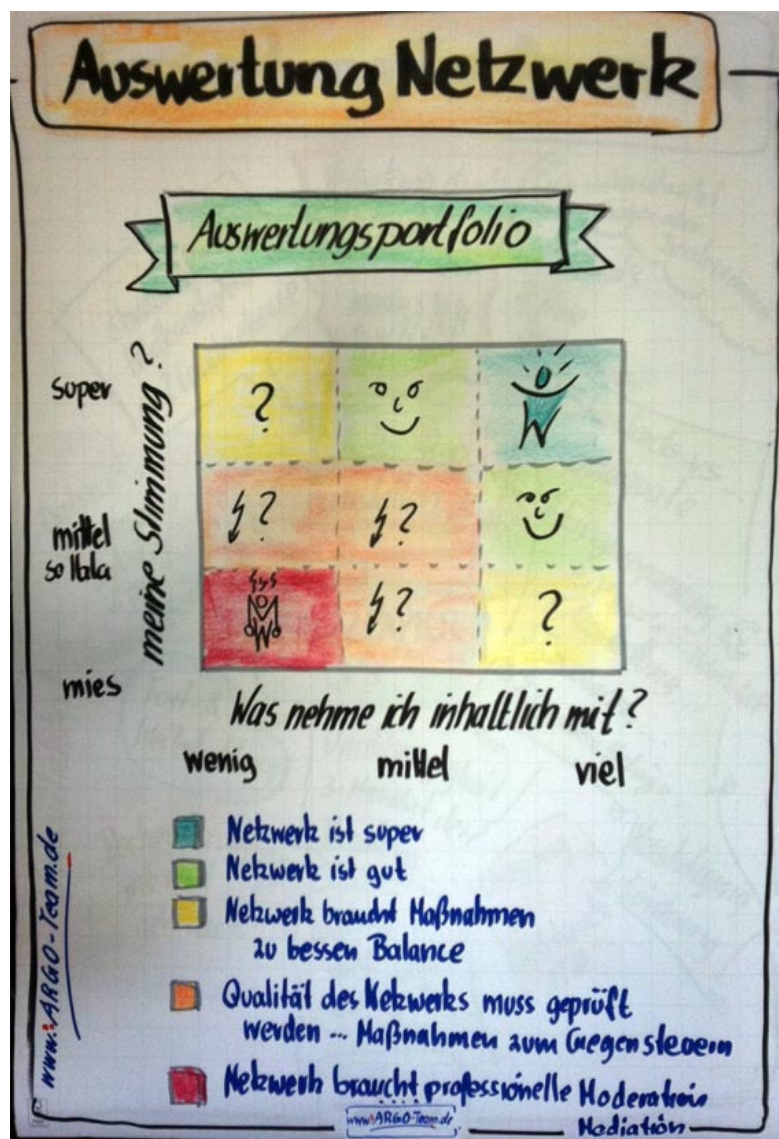 Auswertung Netzwerk
Auswertungsportfolio
meine Stimmung?
super
mittel
so lala
mies
?
?
?
?
?
Was nehme ich inhaltlich mit?
wenig
mittel
viel
Netzwerk ist super
Netzwerk ist gut
Netzwerk braucht Maßnahmen
zu bessen Balance
Qualität des Netzwerks muss geprüft
werden ... Maßnahmen zum Gegensteuern
Netzwerk braucht professionelle Moderation
Mediation
www.ARGO-Team.de
www.ARGO-Team.de